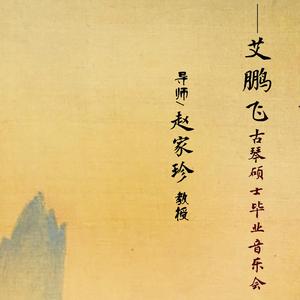 ——艾鹏飞古琴硕士毕业音乐会
导师/赵家珍教授